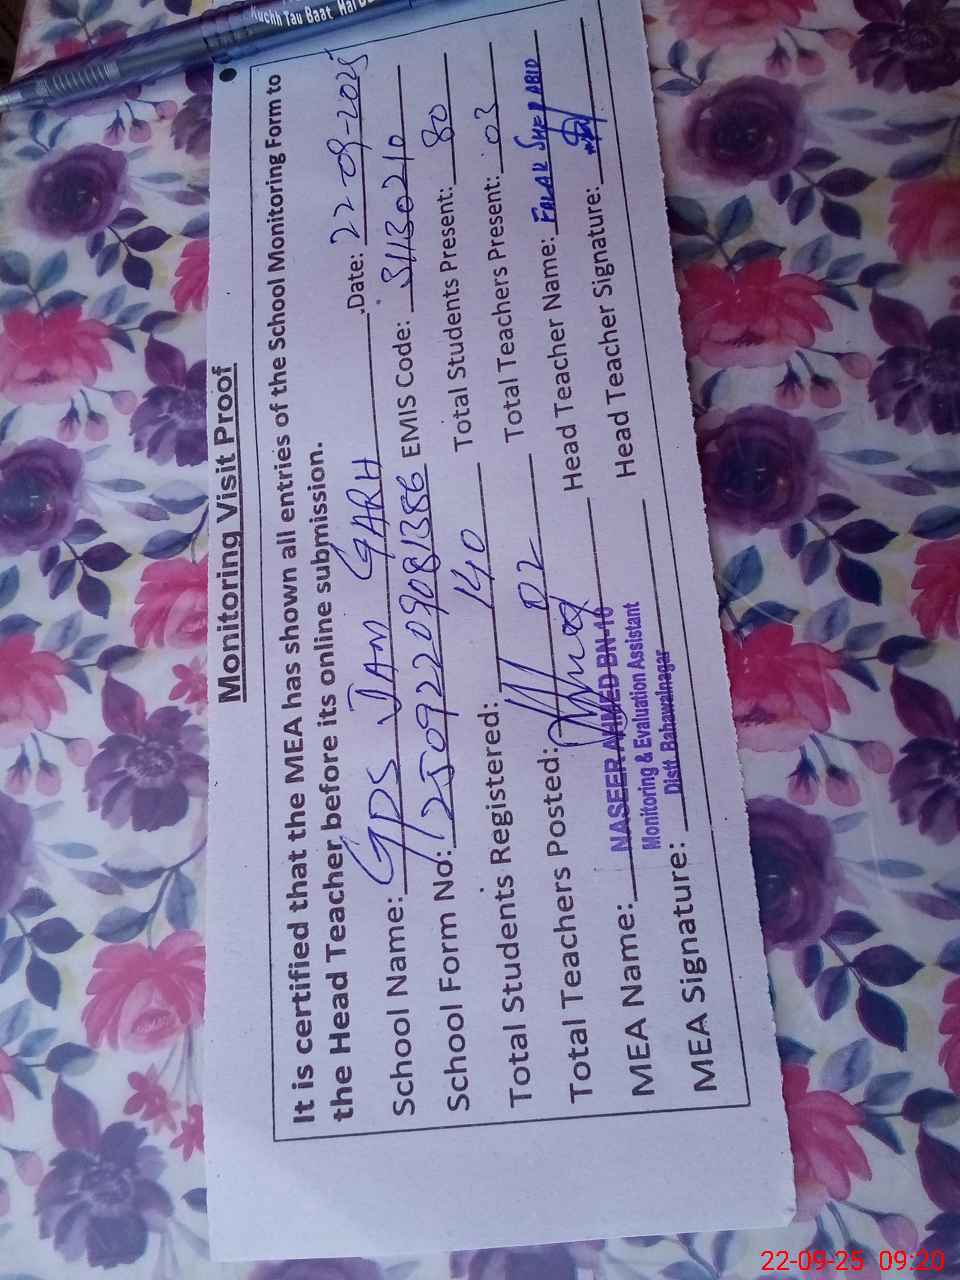 Kuchh Tau Baat Hai
Monitoring Visit Proof
It is certified that the MEA has shown all entries of the School Monitoring Form to
the Head Teacher before its online submission.
School Name: GPS JAM GARH .Date: 22-09-2025
School Form No: 25092209081386 EMIS Code: 31130210
Total Students Registered: 140 Total Students Present: 80
Total Teachers Posted: 02 Total Teachers Present: 03
MEA Name: NASEER AHMED BN-16 Head Teacher Name: FALAK SHER ABID
Monitoring & Evaluation Assistant
Distt Bahawalnagar
MEA Signature: Head Teacher Signature:
22-09-25 09:20